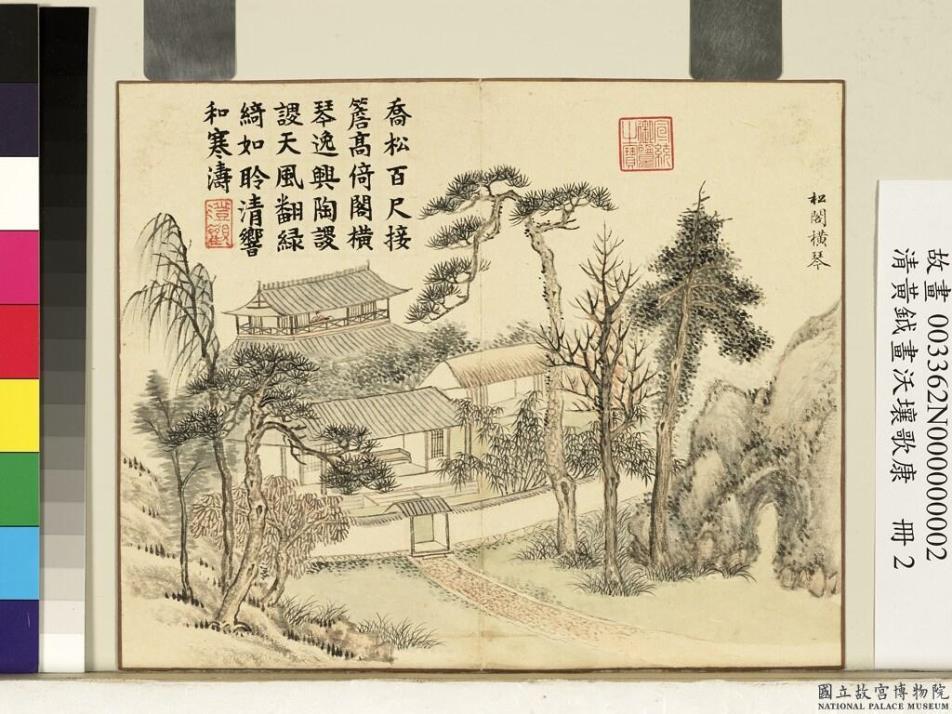 松閣橫琴
喬松百尺接
簷高倚閣橫
琴逸興陶謖
謖天風翻緑
綺如聆清響
和寒濤
澄觀
宣統
御覽
之寶
故畫 003362N000000002
清黃鉞畫沃壤歌康 冊 2
國立故宮博物院
NATIONAL PALACE MUSEUM